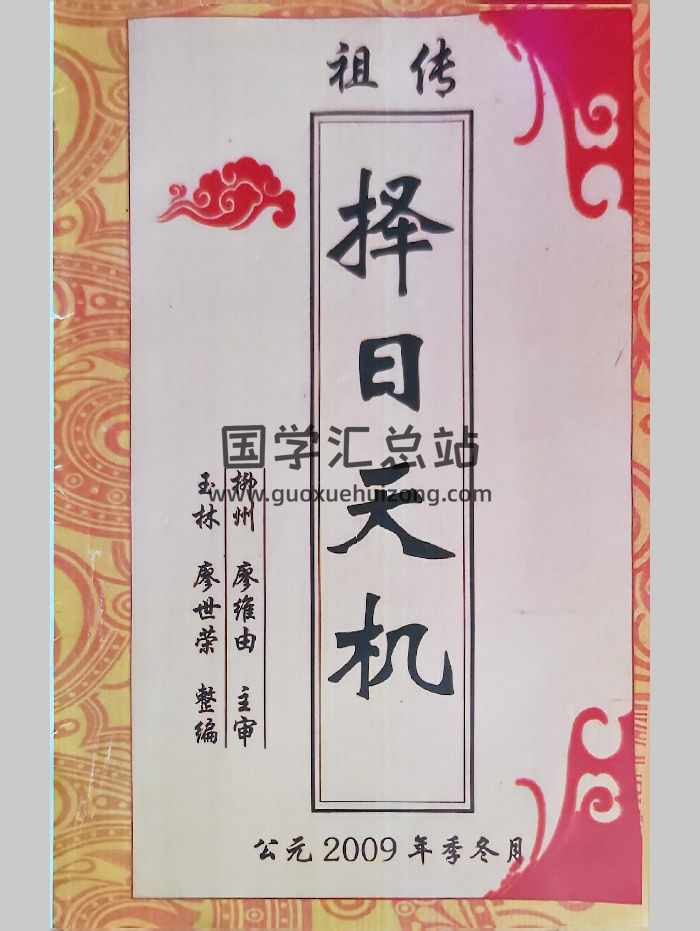 祖传
择日天机
国学汇总站
www.guoxuehuizong.com
柳州 廖维由 主审
玉林 廖世荣 整编
公元2009年季冬月